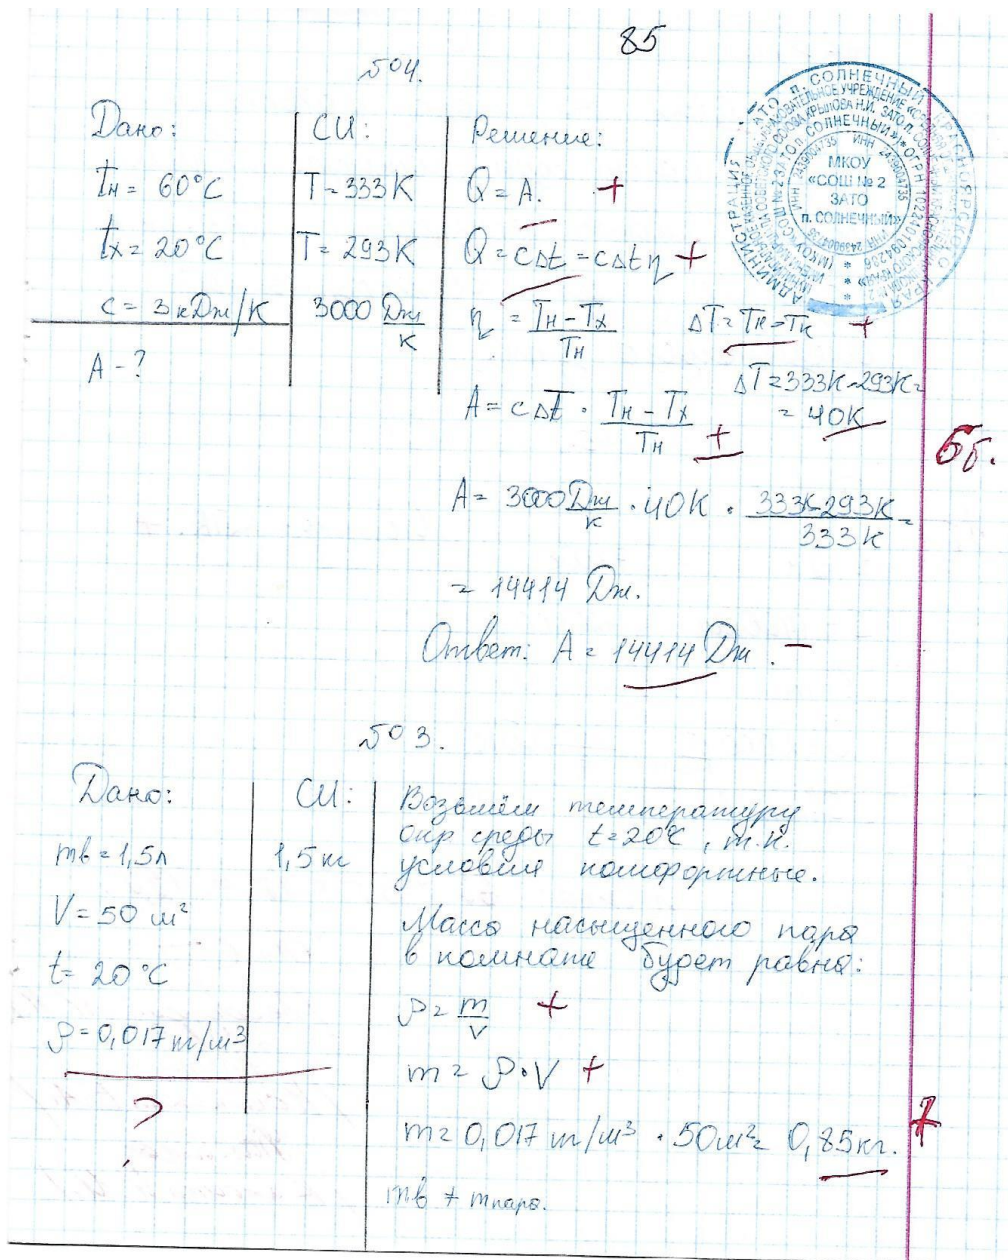 85
№4.
Дано:
tн = 60°C
tx = 20°C
c = 3 кДж/К
A - ?
СИ:
T = 333K
T = 293K
3000 Дж/К
Решение:
Q = A. +
Q = cΔt = cΔtη +
η = (Tн - Tx)/Tн ΔT = Tн - Tк +
ΔT = 333K - 293K =
= 40K
A = cΔT · (Tн - Tx)/Tн +
A = 3000 Дж/К · 40K · (333K - 293K)/333K =
= 14414 Дж.
Ответ: A = 14414 Дж. -
5б.
МКОУ
«СОШ № 2
ЗАТО
п. СОЛНЕЧНЫЙ»
№3.
Дано:
mв = 1,5л
V = 50 м²
t = 20°C
ρ = 0,017 кг/м³
?
СИ:
1,5 кг
Возьмём температуру
окр среды t = 20°C, т.к.
условия комфортные.
Масса насыщенного пара
в комнате будет равна:
ρ = m/V +
m = ρ · V +
m = 0,017 кг/м³ · 50м² = 0,85кг.
mв ≠ mпара.
7